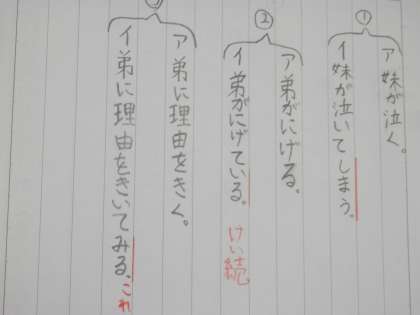 ①
ア 妹が泣く。
イ 妹が泣いてしまう。
②
ア 弟がにげる。
イ 弟がにげている。 けい続
ア 弟に理由をきく。
イ 弟に理由をきいてみる。これ